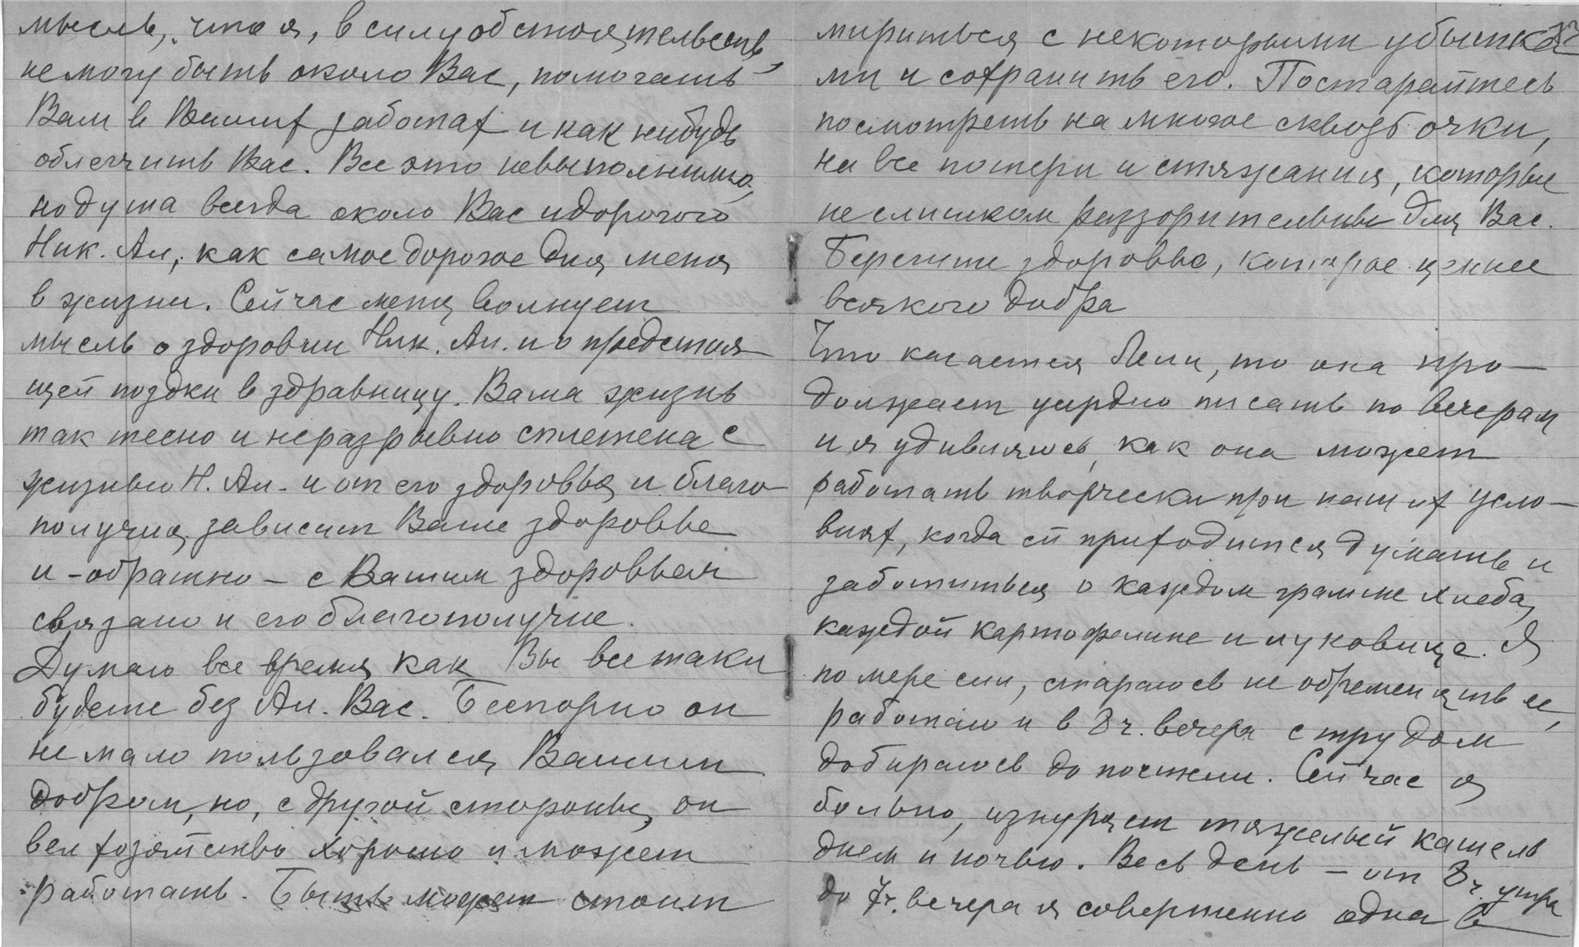 мысль, что я, в силу обстоятельств,
не могу быть около Вас, помогать
Вам в Ваших заботах и как нибудь
облегчить Вас. Все это невыполнимо,
но душа всегда около Вас и дорогого
Ник. Ал., как самое дорогое для меня
в жизни. Сейчас меня волнует
мысль о здоровии Ник. Ал. и о предстоя
щей поздки в здравницу. Ваша жизнь
так тесно и неразрывно сплетена с
жизнью Н. Ал. и от его здоровья и благо
получия зависит Ваше здоровье
и - обратно - с Вашим здоровьем
связано и его благополучие.
Думаю все время, как Вы все таки
будете без Ал. Вас. Бесспорно он
не мало пользовался Вашим
добром, но, с другой стороны, он
вел хозяйство хорошо и может
работать. Быть может стоит
мириться с некоторыми убытка
ми и сохранить его. Постарайтесь
посмотреть на многое сквозь очки,
на все потери и стяжания, которые
не слишком раззорительны для Вас.
Берегите здоровье, которое ценнее
всякого добра
Что касается Лели, то она про-
должает усердно писать по вечерам
и я удивляюсь, как она может
работать творчески при наших усло-
виях, когда ей приходится думать и
заботиться о каждом грамме хлеба,
каждой картофелине и луковице. Я
по мере сил, стараюсь не обременять ее,
работаю и в 8 ч. вечера с трудом
добираюсь до постели. Сейчас я
больна, изнуряет тяжелый кашель
днем и ночью. Весь день - от 8 ч. утра
до 7 ч. вечера я совершенно одна в